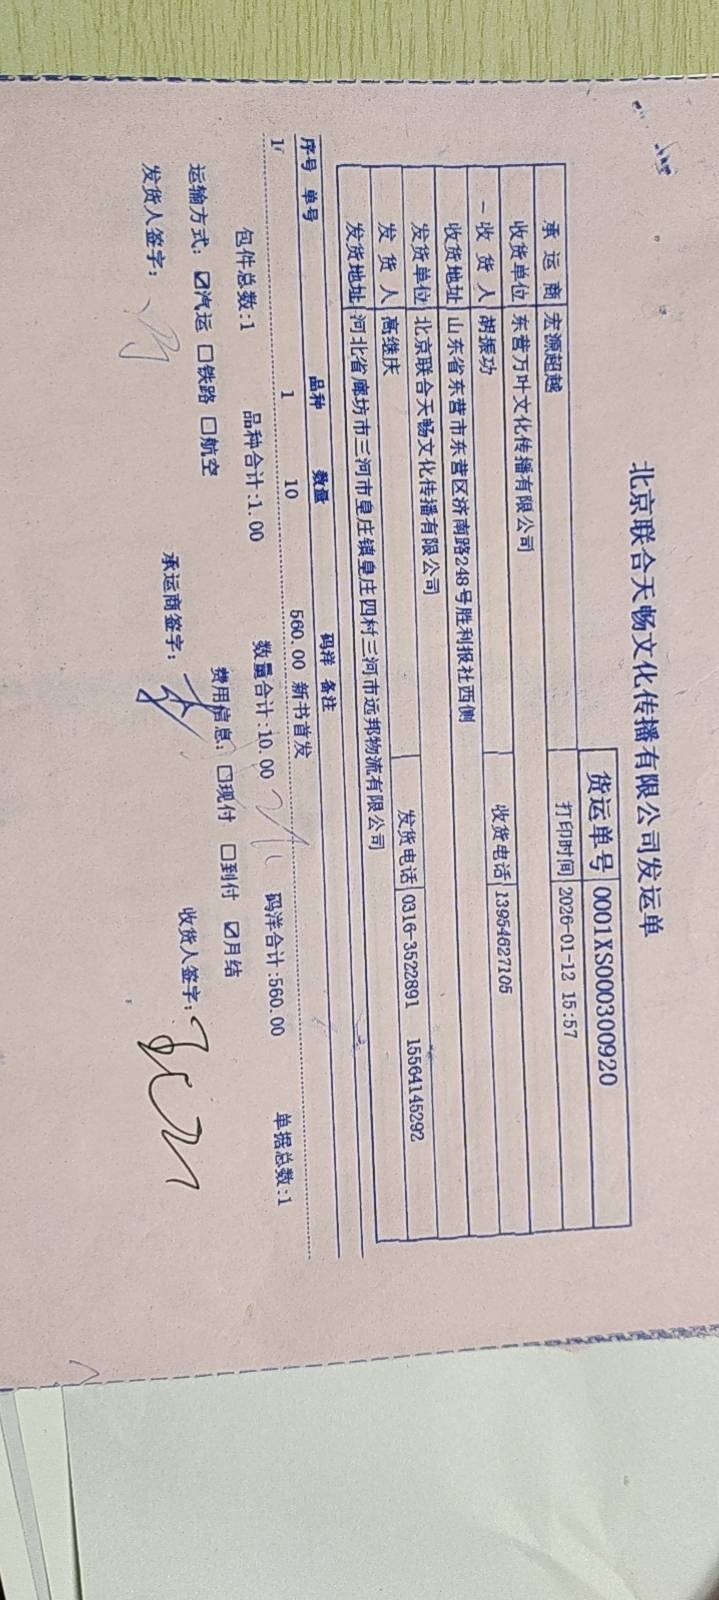 北京联合天畅文化传播有限公司发运单
货运单号 0001XS000300920
打印时间 2026-01-12 15:57
承运商 宏源超越
收货单位 东营万叶文化传播有限公司
收货人 胡振功 收货电话 13954627105
收货地址 山东省东营市东营区济南路248号胜利报社西侧
发货单位 北京联合天畅文化传播有限公司
发货人 高继庆 发货电话 0316-3522891 15564145292
发货地址 河北省廊坊市三河市皇庄镇皇庄四村三河市远邦物流有限公司
序号 单号 品种 数量 码洋 备注
1 1 10 560.00 新书首发
包件总数:1 品种合计:1.00 数量合计:10.00 码洋合计:560.00 单据总数:1
运输方式: ☑汽运 □铁路 □航空 费用信息: □现付 □到付 ☑月结
发货人签字: 承运商签字: 收货人签字: